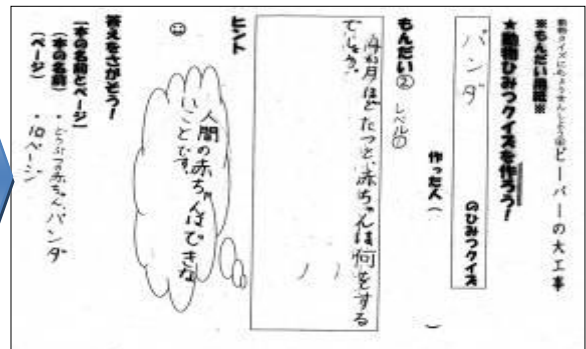 動物クイズにちょうせんしよう④ビーバーの大工事
※もんだい用紙※
★動物ひみつクイズを作ろう！
パンダ のひみつクイズ
作った人（　　　）
もんだい② レベル①
四か月ほどたつと、赤ちゃんは何をする
でしょう。
ヒント
人間の赤ちゃんはできな
いことです。
答えをさがそう！
【本の名前とページ】
（本の名前）・どうぶつの赤ちゃん パンダ
（ページ）・10ページ